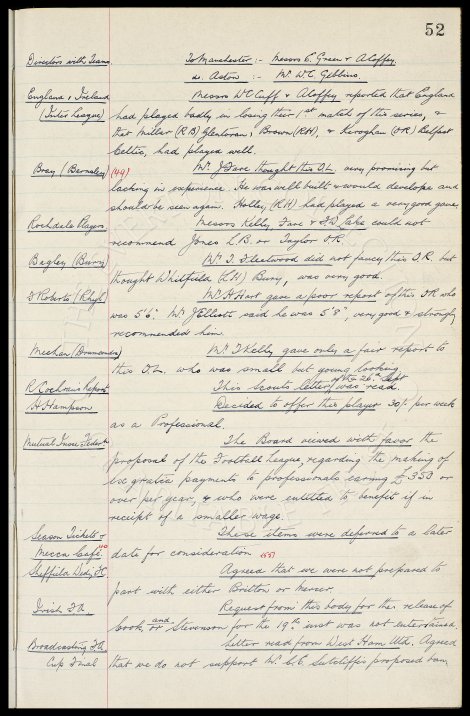 52
Directors with Teams. To Manchester :- Messrs C. Green & A Coffey.
do. Aston :- Mr W.C. Gibbins.
England v Ireland Messrs W C Cuff & A Coffey reported that England
(Inter League) had played badly in losing their 1st match of this series, &
that Millar (R B) Glentoran, Brown (RH), & Keroghan (OR) Belfast
Celtic, had played well.
Bray (Barnsley) (49) Mr J Fare thought this O.L. very promising but
lacking in experience. He was well built & would develope and
should be seen again. Holley, (R H) had played a very good game,
Rochdale Players Messrs Kelly, Fare & could not
recommend Jones L.B. or Taylor I R.
Bagley (Bury) Mr T. Fleetwood did not fancy this I.R. but
thought Whitfield, (L H) Bury, was very good.
D Roberts (Rhyl) Mr H Hart gave a poor report of this I R who
was 5'6". Mr J Elliott said he was 5'8", very good & strongly
recommended him.
Meehan Mr T Kelly gave only a fair report to
this O.L. who was small but young looking
R Cochrans Report This Scouts letter of the 26th Sept was read.
H Hampson Decided to offer this player 30/- per week
as a Professional.
Mutual Insce Federtn The Board viewed with favor the
proposal of the Football League, regarding the making of
Ex gratia payments to professionals earning £350 or
over per year, & who were entitled to benefit if in
receipt of a smaller wage.
Season Tickets & These items were deferred to a later
Mecca Café. 40 date for consideration (53)
Sheffield Wedy F.C. Agreed that we were not prepared to
part with either Britton or Mercer.
Irish F.A. Request from this body for the release of
Cook, and or Stevenson for the 19th inst was not entertained.
Broadcasting F A Letter read from West Ham Utd. Agreed
Cup Final that we do not support Mr C.E. Sutcliffe's proposed ban,